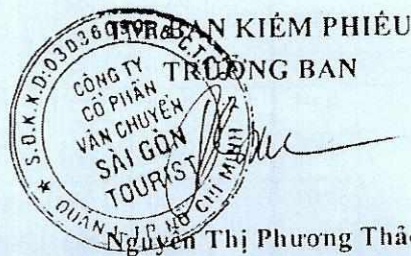 BAN KIỂM PHIẾU
TRƯỞNG BAN
S.Đ.K.K.D:
C.T.
CÔNG TY
CỔ PHẦN
VẬN CHUYỂN
SÀI GÒN
TOURIST
QUẬN 1 - T.P HỒ CHÍ MINH
Nguyễn Thị Phương Thảo